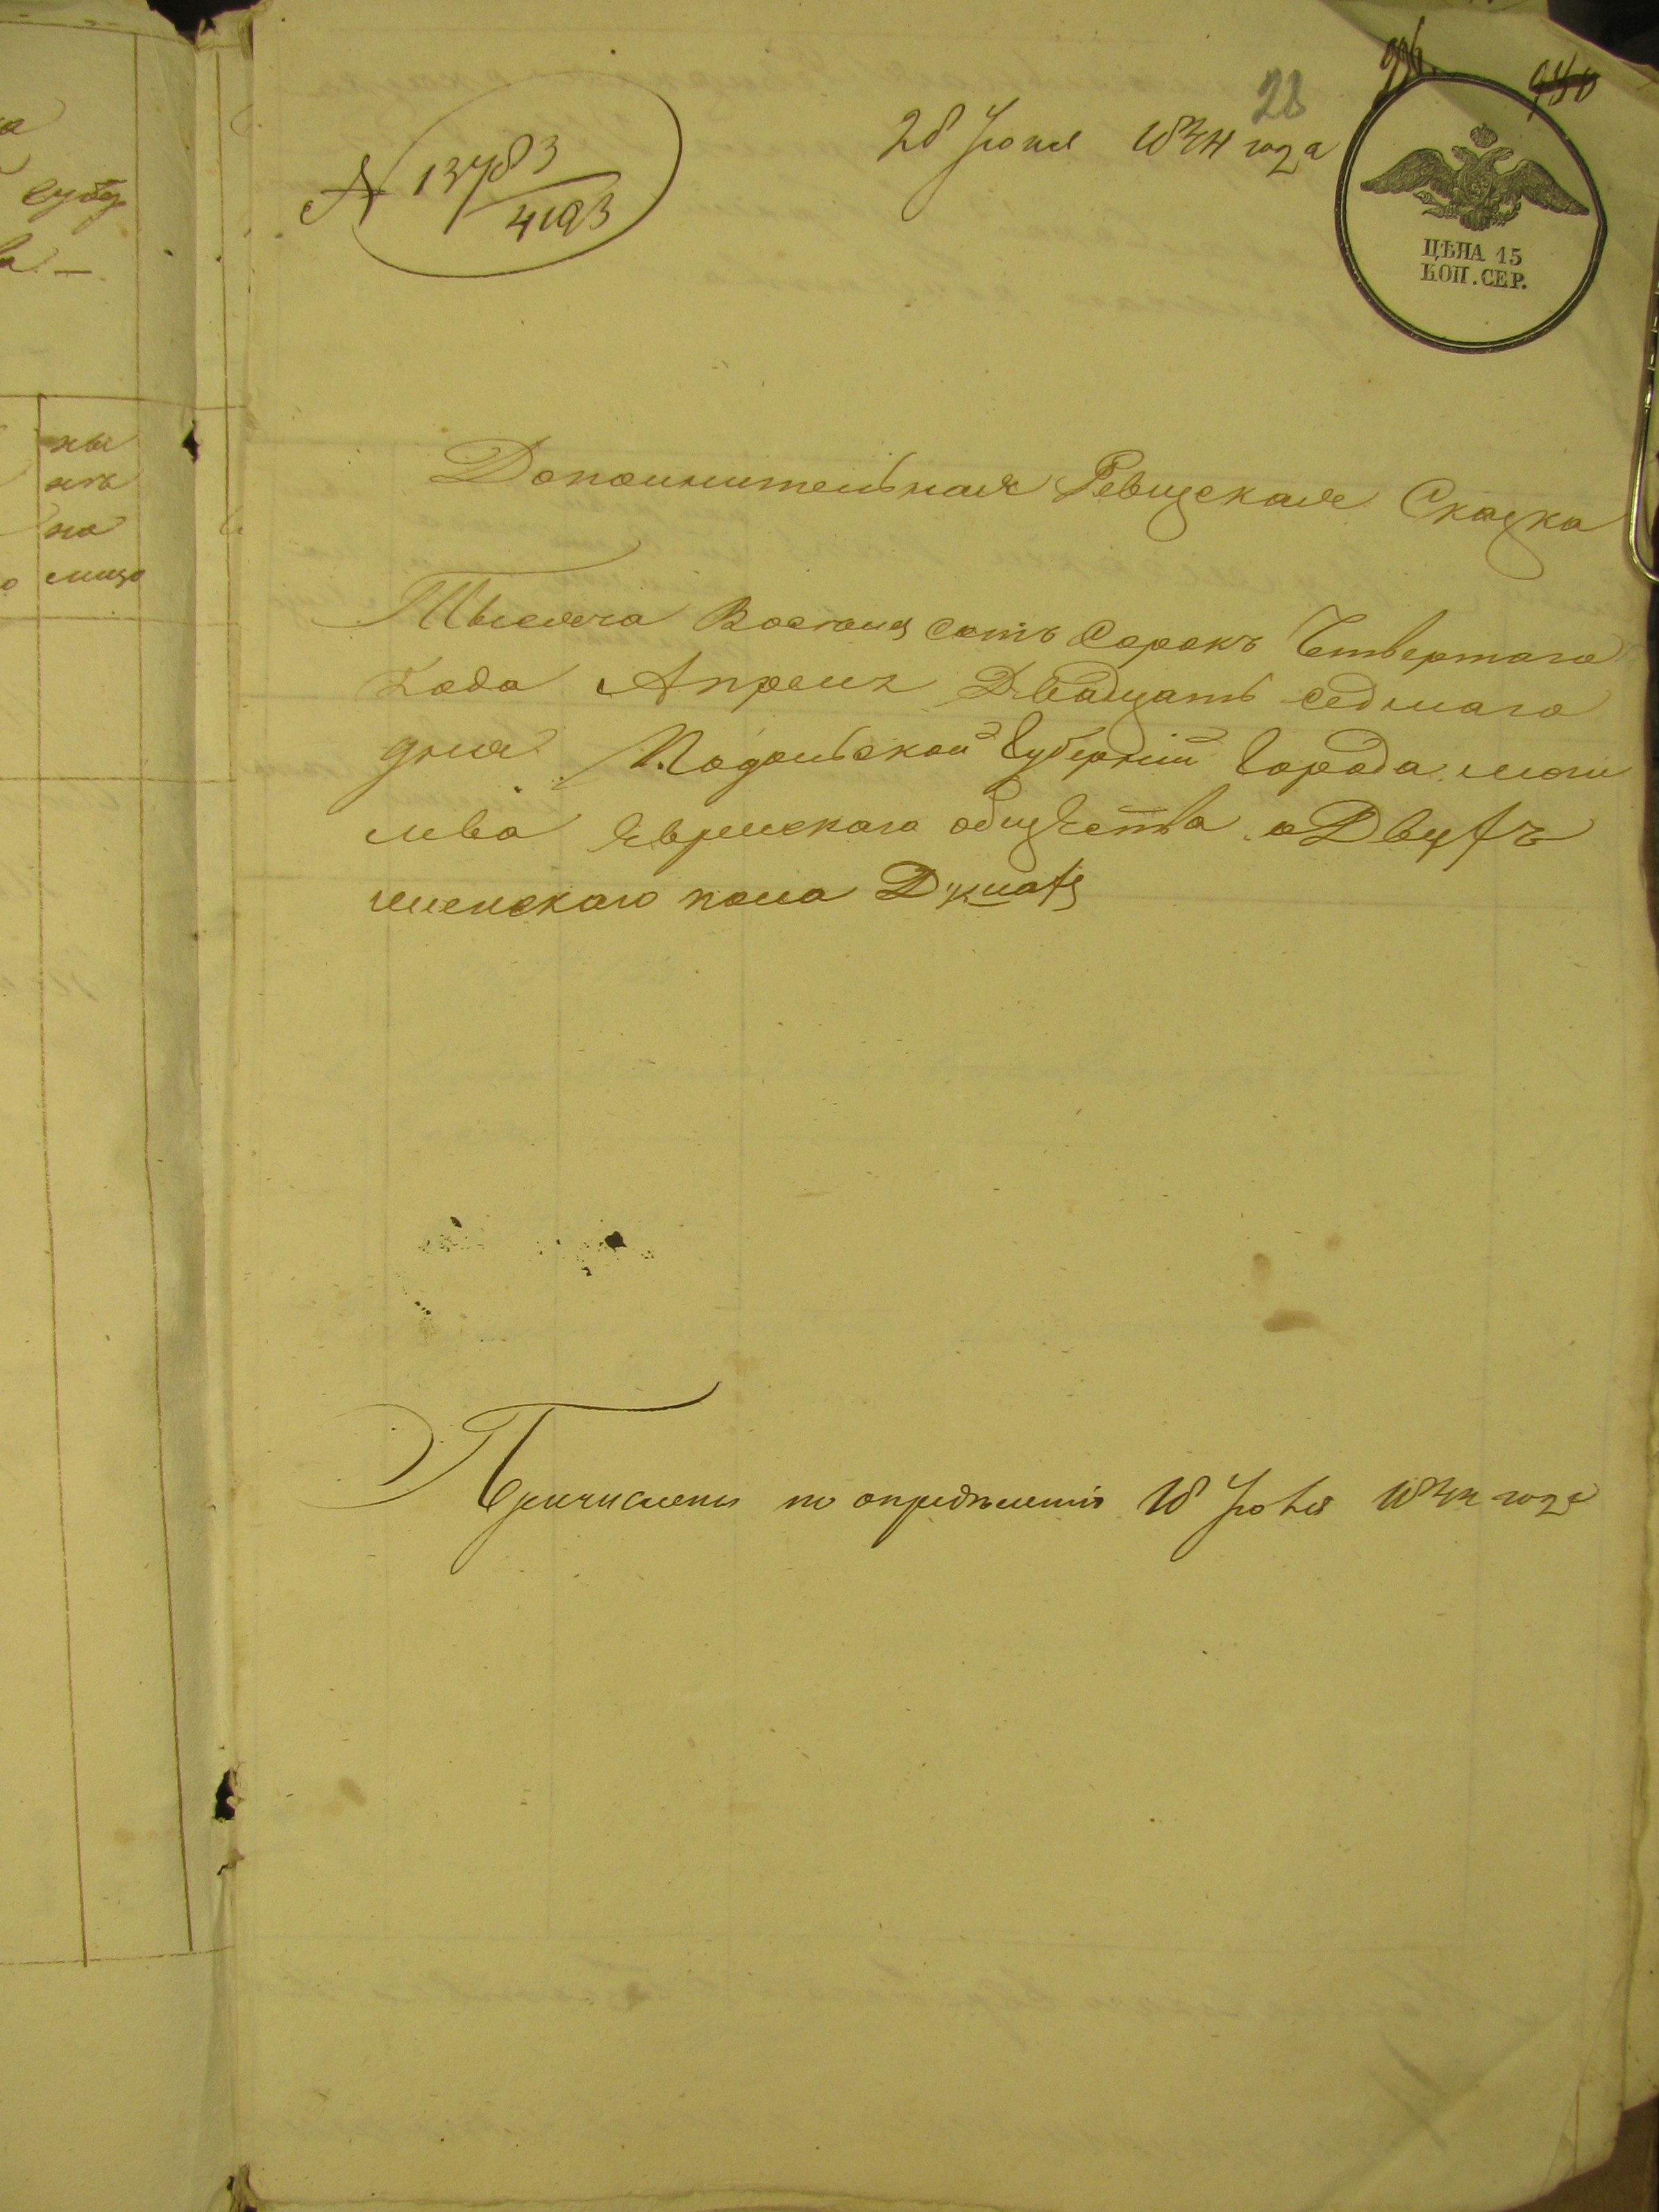 28
976
950
№ 13483
4193
28 Іюня 1844 года
ЦѢНА 15
КОП. СЕР.
Дополнительная Ревизская Сказка
Тысяча Восемь сотъ Сорокъ Четвертаго
Года Апреля Двадцать Седмаго
дня Подольской Губерніи Города Моги
лева Еврейскаго общества о Двухъ
женскаго пола Душахъ
Причислены по определенію 18 Іюня 1844 года
губер
ны
на
лицо